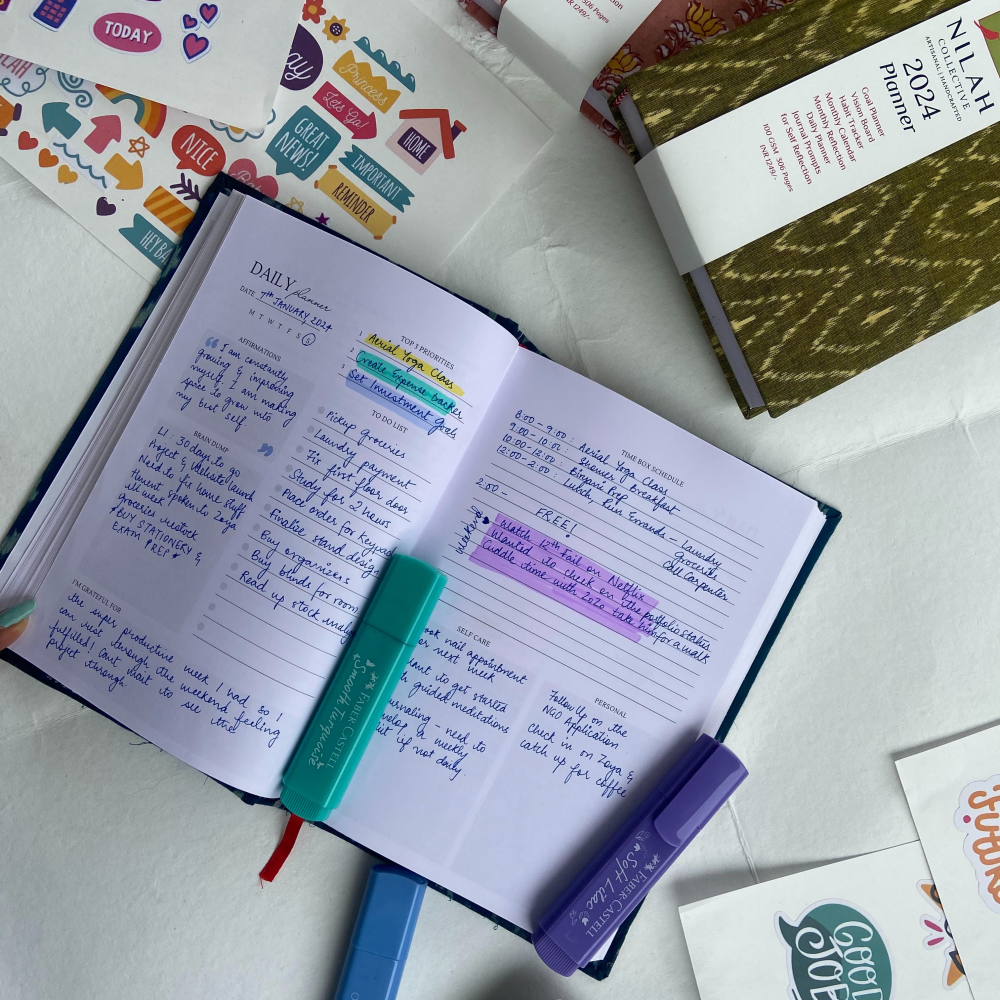 TODAY
NICE
Princess
Let's Go!
GREAT
NEWS!
HOME
IMPORTANT
REMINDER
506 Pages
INR 1249/-
NILAH
COLLECTIVE
ARTISANAL | HANDCRAFTED
2024
Planner
Goal Planner
Vision Board
Habit Tracker
Monthly Calendar
Monthly Reflection
Daily Planner
Journal Prompts
for Self Reflection
100 GSM 306 Pages
INR 1249/-
DAILY planner
DATE 7TH JANUARY 2024
M T W T F S S
AFFIRMATIONS
I am constantly
growing & improving
myself. I am making
space to grow into
my best self.
BRAIN DUMP
30 days to go
Project & Website launch
Need to fix home stuff
all week!
Havent spoken to Zoya
groceries restock
*BUY STATIONERY &
EXAM PREP*
I'M GRATEFUL FOR
the super productive week I had so I
can rest through the weekend feeling
fulfilled! Cant wait to see the
project through
TOP 3 PRIORITIES
1 Aerial Yoga Class
2 Create Expense tracker
3 Set Investment goals
TO DO LIST
Pickup groceries
Laundry payment
Fix first floor door
Study for 2 hours
Place order for keypad
Finalise stand design
Buy organizers
Buy blinds for room
Read up stock
TIME BOX SCHEDULE
8:00 - 9:00 : Aerial Yoga Class
9:00 - 10:00 : Shower Breakfast
10:00 - 12:00 : Binyani Prep
12:00 - 2:00 : Lunch, Run Errands - Laundry
groceries
Call Carpenter
2:00 -
FREE!
Weekend
Watch 12th Fail on Netflix
Wanted to check on the portfolio stocks
Cuddle time with zozo take him for a walk
SELF CARE
nail appointment
next week
to get started
guided meditations
need to
a weekly
if not daily.
PERSONAL
Follow Up on the
NGO Application
Check in on Zoya &
catch up for coffee
FABER-CASTELL
Smooth Turquoise
FABER-CASTELL
Soft Lilac
GOOD
JOB